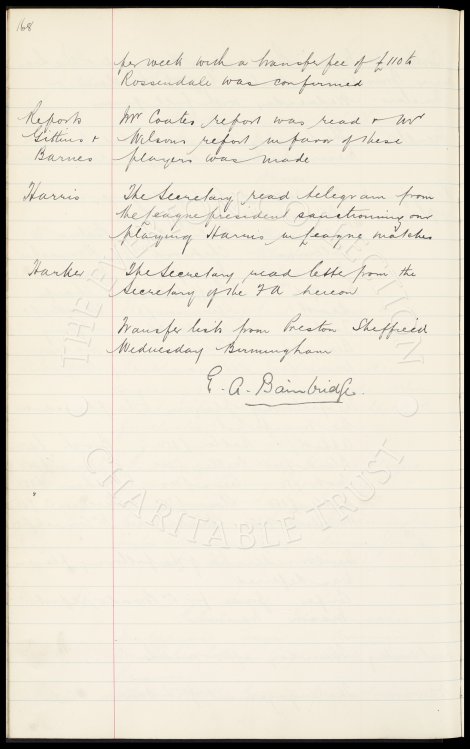 168
per week with a transfer fee of £110 to
Rossendale was confirmed
Reports Mr Coates report was read & Mr
Gittins & Wilsons report in favor of these
Barnes players was made
Harris The Secretary read telegram from
the League president sanctioning our
playing Harris in League matches
Harker The Secretary read letter from the
Secretary of the FA hereon
Transfer lists from Preston Sheffield
Wednesday Birmingham
E. A. Bainbridge.
THE EVERTON COLLECTION
CHARITABLE TRUST